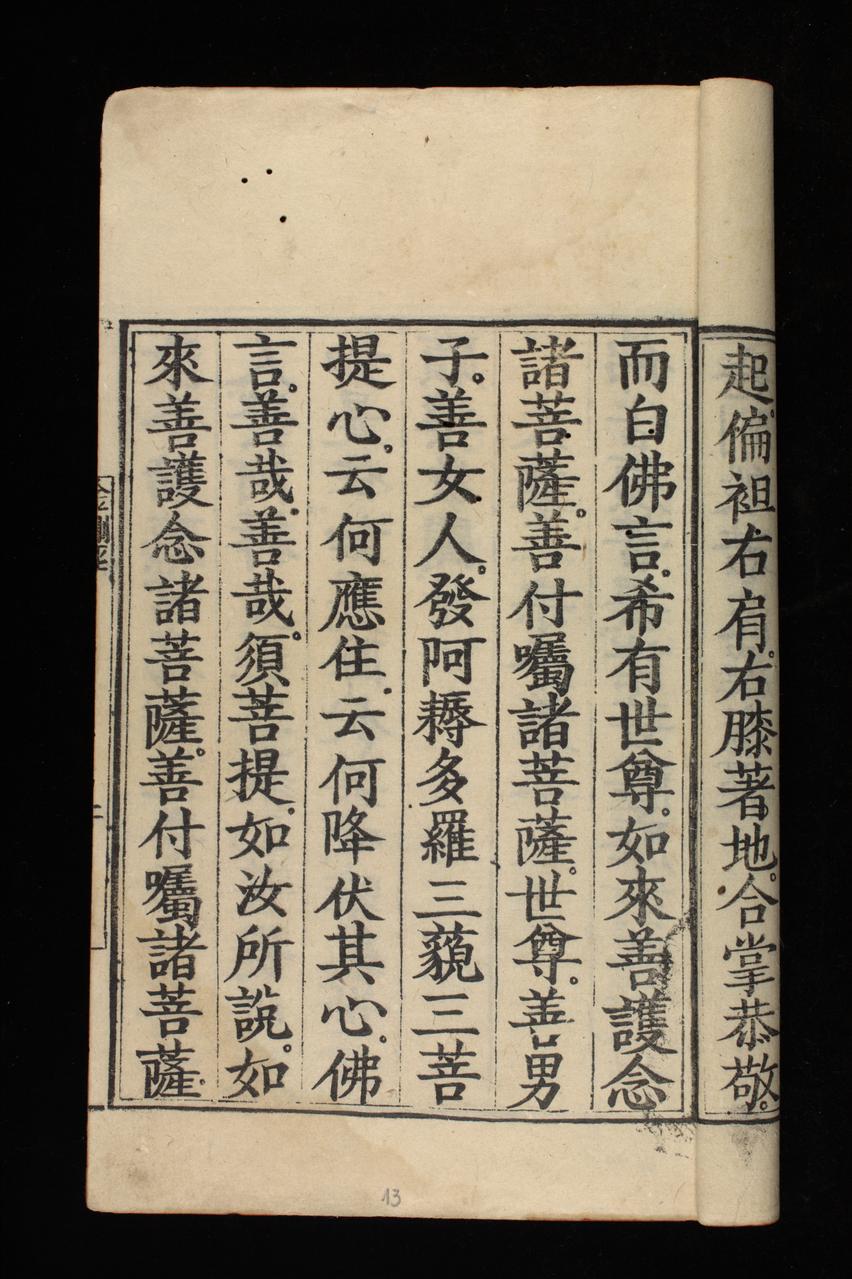 起。偏袒右肩。右膝著地。合掌恭敬。
而白佛言。希有世尊。如來善護念
諸菩薩。善付囑諸菩薩。世尊。善男
子。善女人。發阿耨多羅三藐三菩
提心。云何應住。云何降伏其心。佛
言。善哉。善哉。須菩提。如汝所說。如
來善護念諸菩薩。善付囑諸菩薩。
金剛經
13